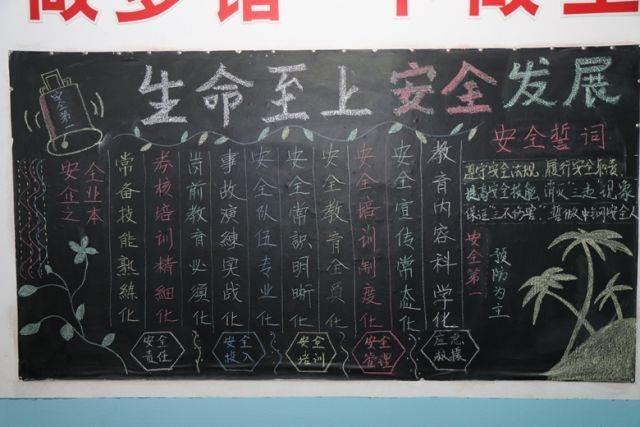 生命至上 安全发展
安全第一
安全
企业
之本
教育内容科学化
安全宣传常态化
安全培训制度化
安全教育全员化
安全常识明晰化
安全队伍专业化
事故演练实战化
岗前教育必须化
考核培训精细化
常备技能熟练化
安全誓词
遵守安全法规，履行安全职责，
提高安全技能，消灭三违现象
保证"三不伤害"，誓做 安全人
安全第一
预防为主
安全
责任
安全
投入
安全
培训
安全
管理
应急
救援